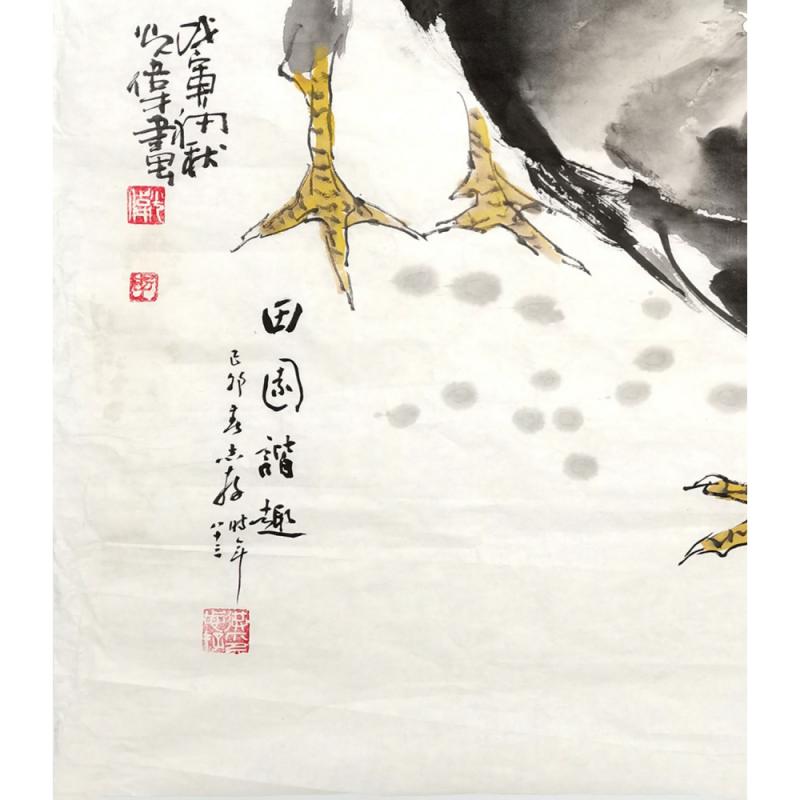 戊寅秋
光偉畫
田園諧趣
己卯春志存時年
八十三